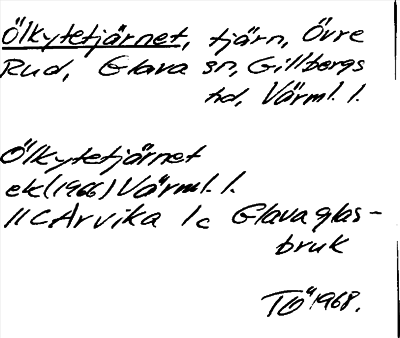 Ölkytetjärnet, tjärn, Övre
Rud, Glava sn, Gillbergs
hd, Värml. l.
Ölkytetjärnet
ek (1966) Värml. l.
11C Arvika 1c Glava glas-
bruk
TÖ 1968.